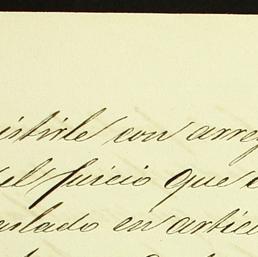 istirle con arreg
el juicio que
aslado en artic